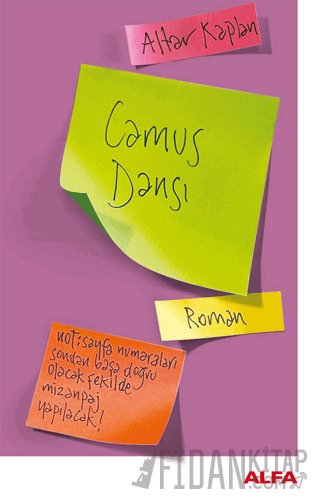 Altar Kaplan
Camus
Dansı
Roman
not: sayfa numaraları
sondan başa doğru
olacak şekilde
mizanpaj
yapılacak!
FİDANKİTAP
.com
ALFA